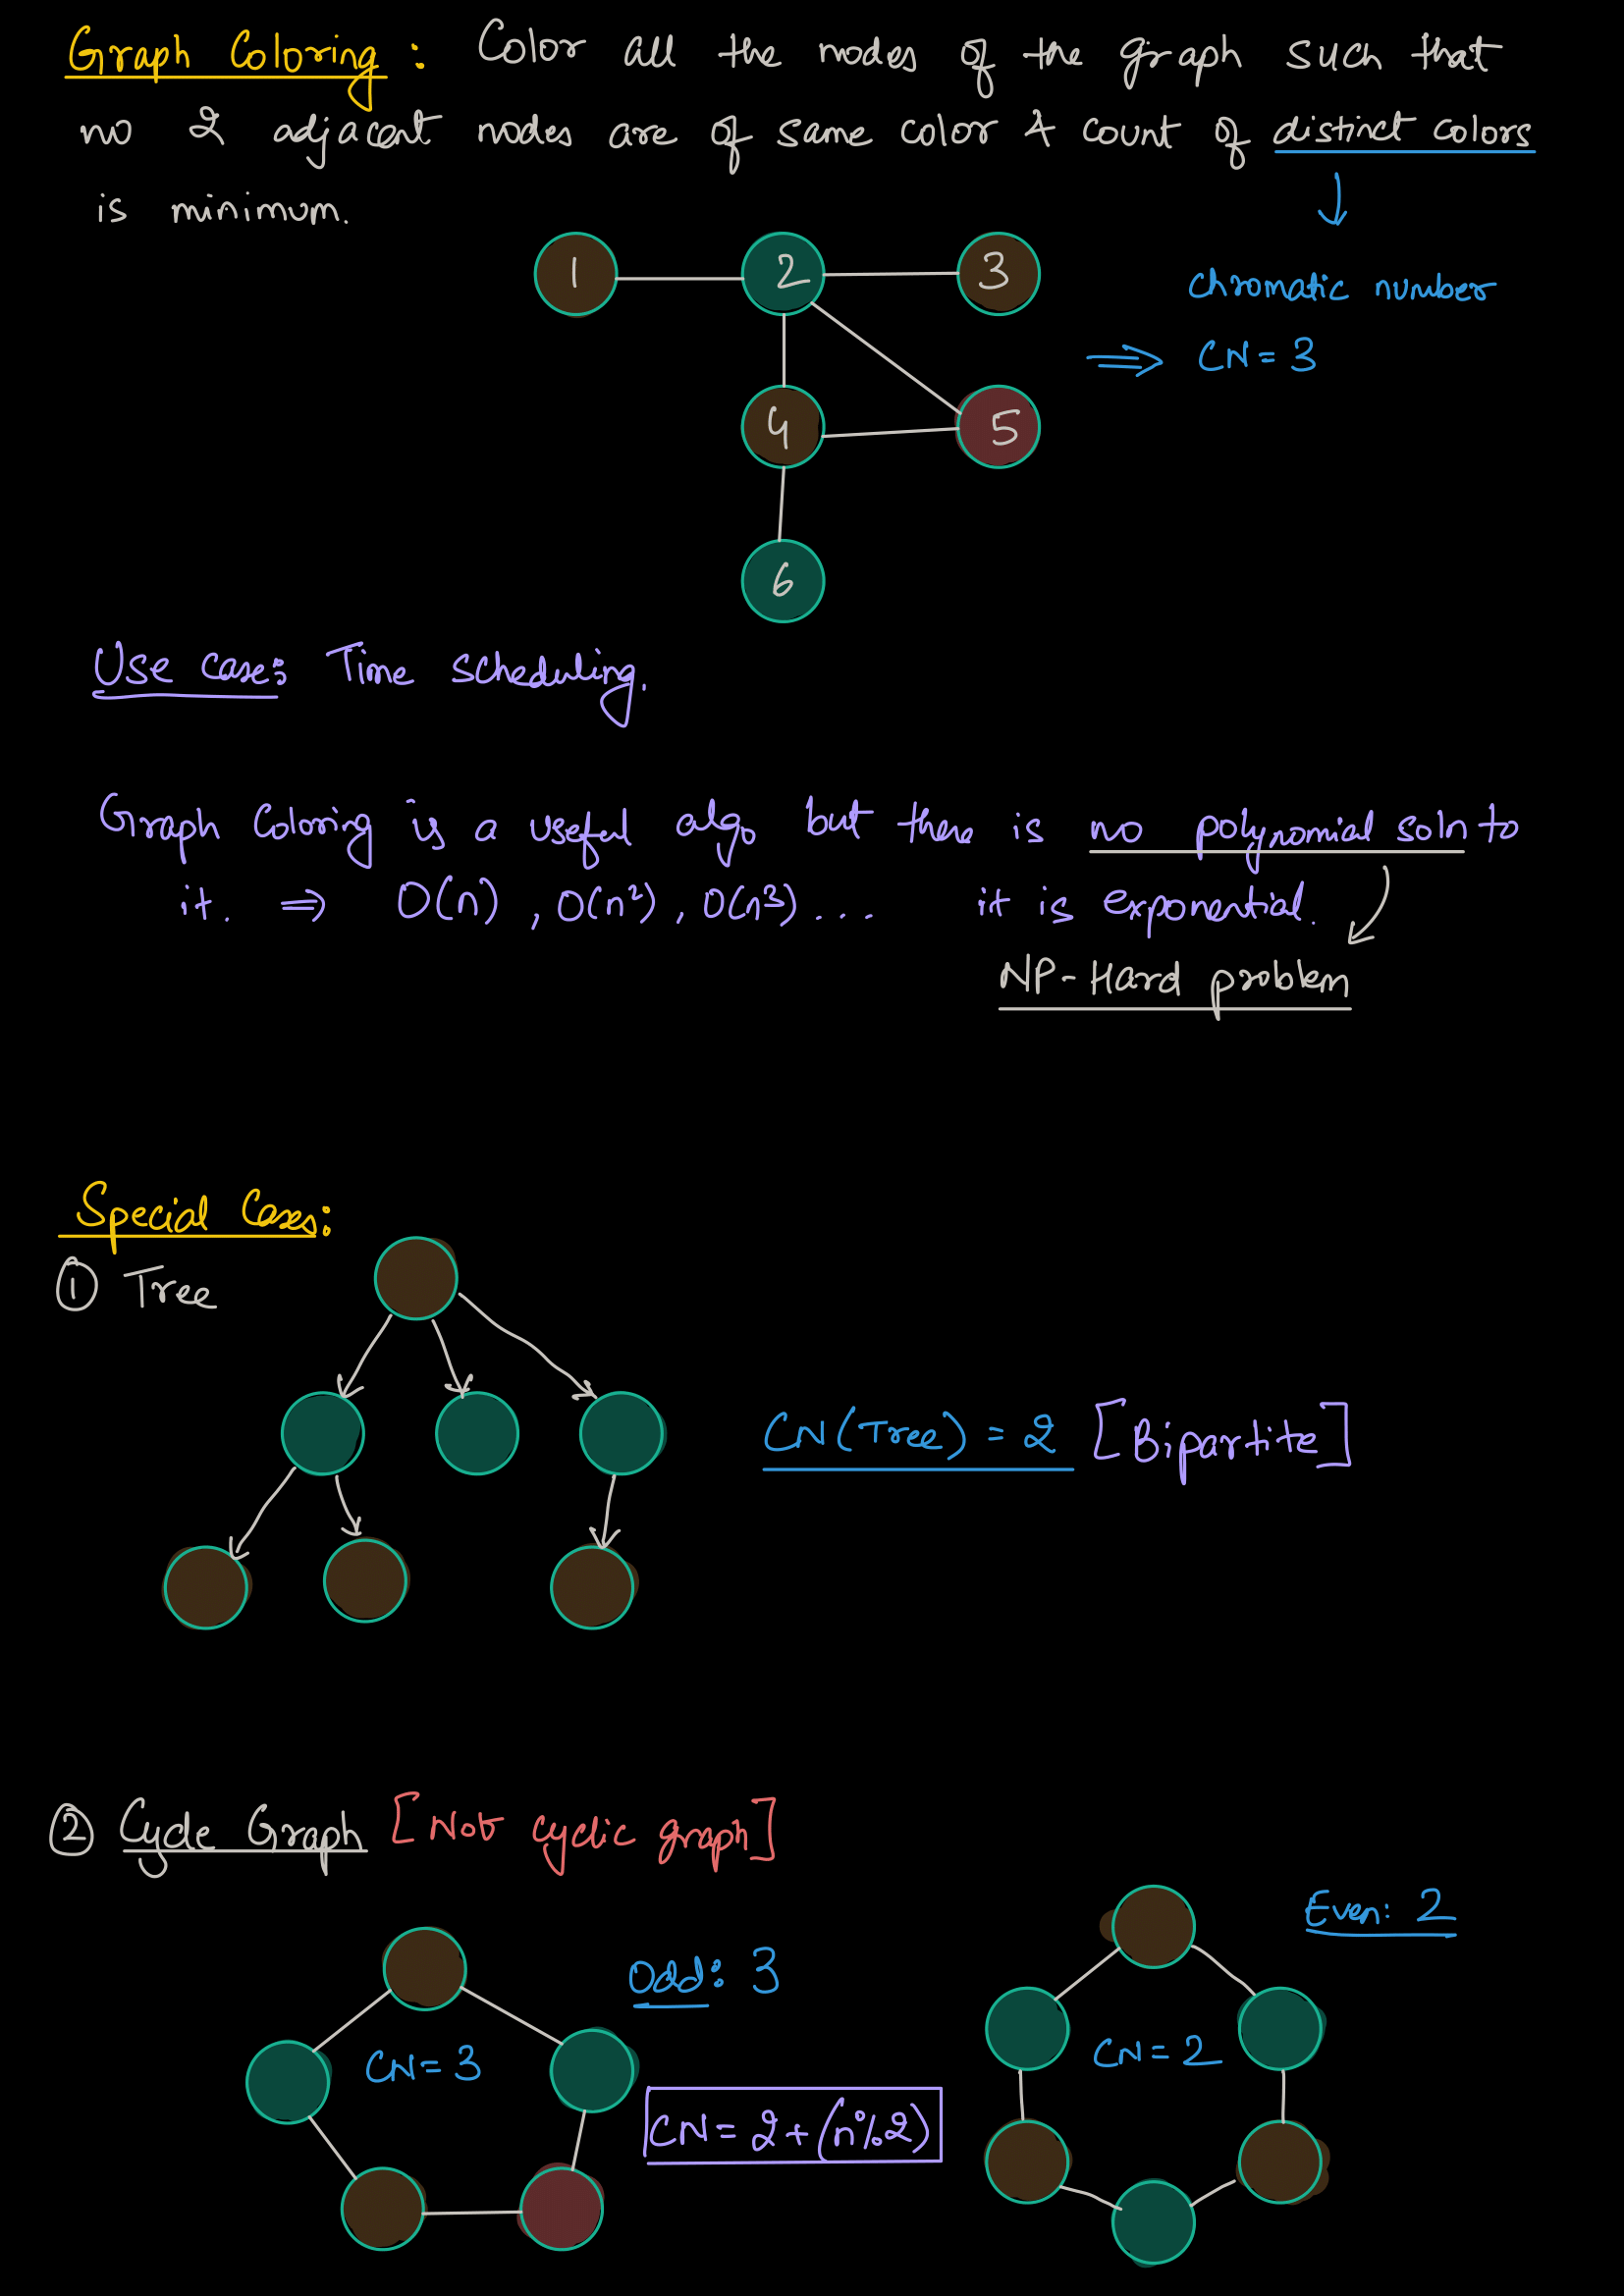 Graph Coloring : Color all the nodes of the graph such that
no 2 adjacent nodes are of same color & count of distinct colors
is minimum.
1 2 3
chromatic number
⇒ CN = 3
4 5
6
Use case: Time scheduling.
Graph Coloring is a useful algo but there is no polynomial soln to
it. ⇒ O(n), O(n²), O(n³)... it is exponential.
NP-Hard problem
Special Cases:
① Tree
CN(Tree) = 2 [Bipartite]
② Cycle Graph [Not cyclic graph]
Even: 2
Odd: 3
CN = 3
CN = 2
CN = 2 + (n%2)